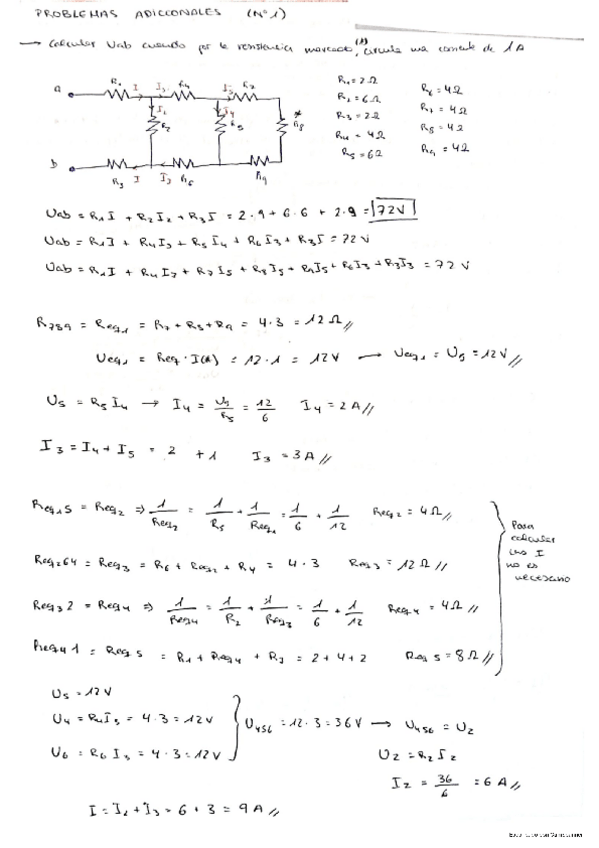 PROBLEMAS ADICIONALES (Nº1)
→ Calcular Uab cuando por la resistencia marcada (*), circula una corriente de 1A
R1 I I3 R4 I5 R7
a I2 I4 *
R2 R5 R8
b
R3 I I3 R6 R9
R1 = 2Ω
R2 = 6Ω
R3 = 2Ω
R4 = 4Ω
R5 = 6Ω
R6 = 4Ω
R7 = 4Ω
R8 = 4Ω
R9 = 4Ω
Uab = R1I + R2I2 + R3I = 2·9 + 6·6 + 2·9 = 72V
Uab = R1I + R4I3 + R5I4 + R6I3 + R3I = 72V
Uab = R1I + R4I3 + R7I5 + R8I5 + R9I5 + R6I3 + R3I3 = 72V
R789 = Req1 = R7 + R8 + R9 = 4·3 = 12Ω //
Ueq1 = Req · I(*) = 12·1 = 12V → Ueq1 = U5 = 12V //
U5 = R5I4 → I4 = U5/R5 = 12/6 I4 = 2A //
I3 = I4 + I5 = 2 + 1 I3 = 3A //
Req15 = Req2 ⇒ 1/Req2 = 1/R5 + 1/Req1 = 1/6 + 1/12 Req2 = 4Ω //
Req264 = Req3 = R6 + Req2 + R4 = 4·3 Req3 = 12Ω //
Req32 = Req4 ⇒ 1/Req4 = 1/R2 + 1/Req3 = 1/6 + 1/12 Req4 = 4Ω //
Req41 = Req5 = R1 + Req4 + R3 = 2+4+2 Req5 = 8Ω //
Para
calcular
las I
no es
necesario
U5 = 12V
U4 = R4I3 = 4·3 = 12V
U6 = R6I3 = 4·3 = 12V
U456 = 12·3 = 36V → U456 = U2
U2 = R2I2
I2 = 36/6 = 6A //
I = I2 + I3 = 6 + 3 = 9A //